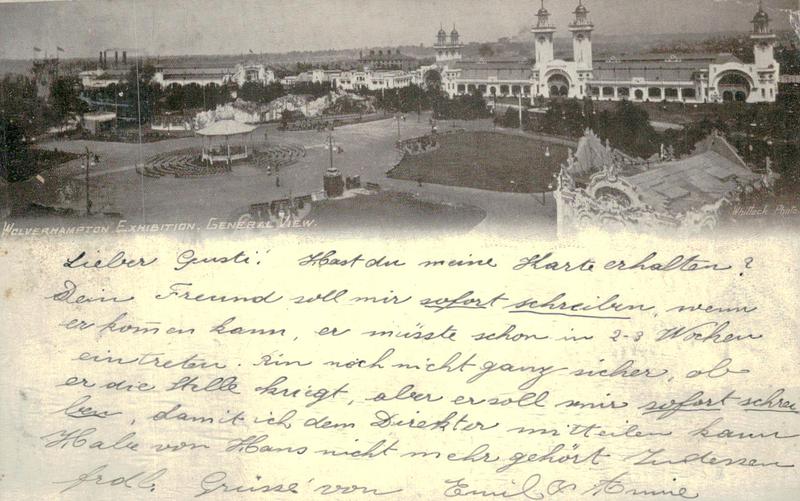 WOLVERHAMPTON EXHIBITION. GENERAL VIEW.
Whitlock Photo
Lieber Gusti! Hast du meine Karte erhalten?
Dein Freund soll mir sofort schreiben, wenn
er kom̄en kann, er müsste schon in 2-3 Wochen
eintreten. Bin noch nicht ganz sicher, ob
er die Stelle kriegt, aber er soll mir sofort schrei
ben, damit ich dem Direktor mitteilen kann
Habe von Hans nicht mehr gehört Indessen
frdl. Grüsse von Emil & Annie